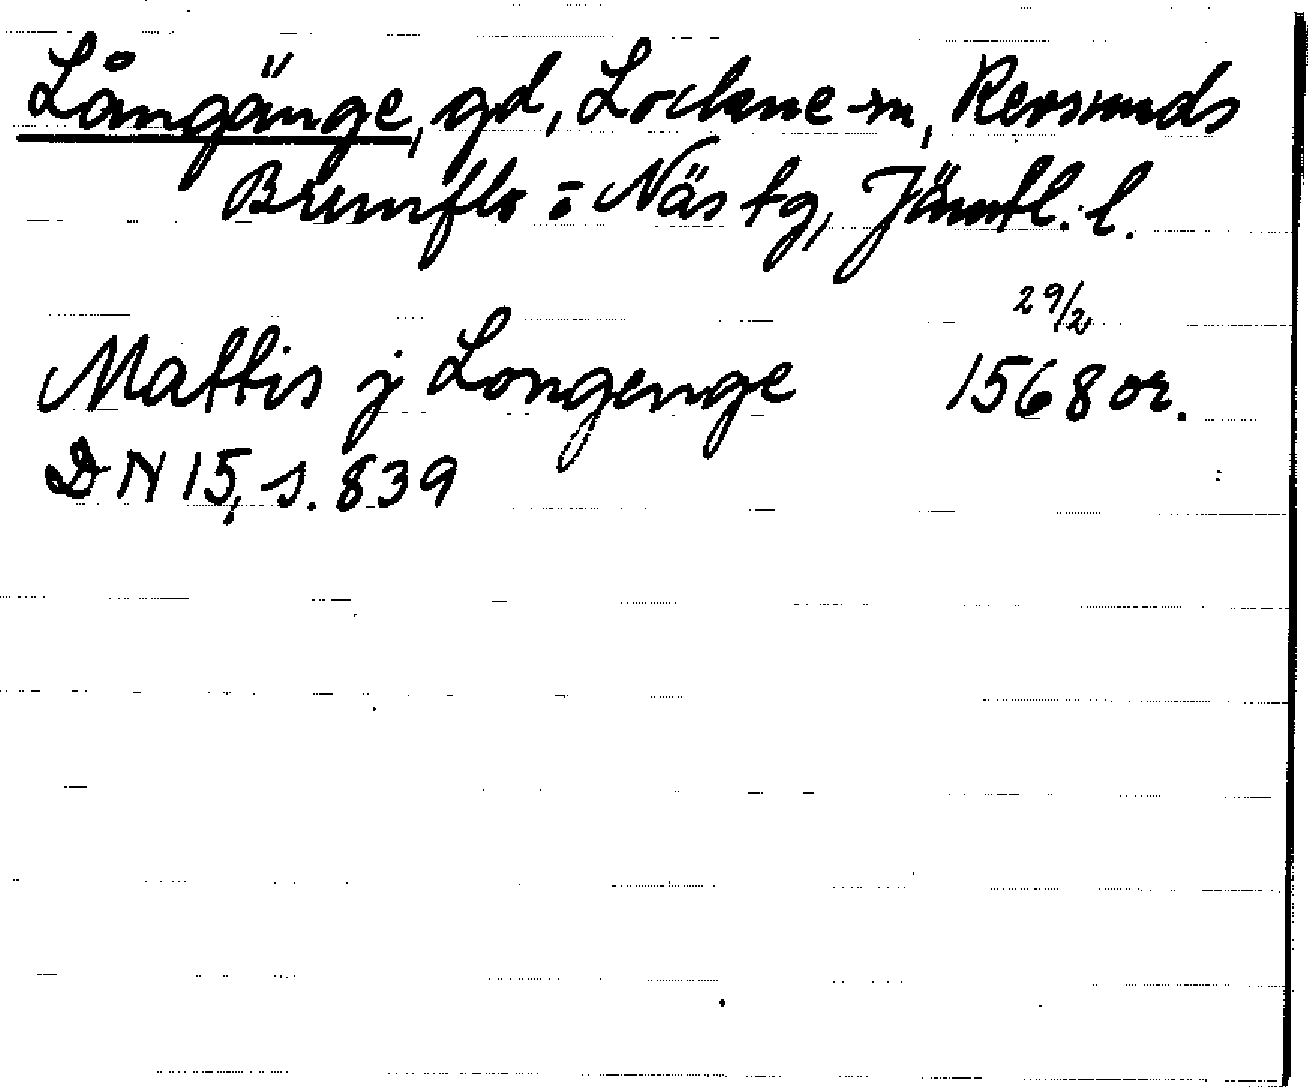 Långänge, gd, Lockne sn, Revsunds
Brunflo o Näs tg, Jämtl. l.
29/2
Mattis j Longenge 1568 or.
DN 15, s. 839